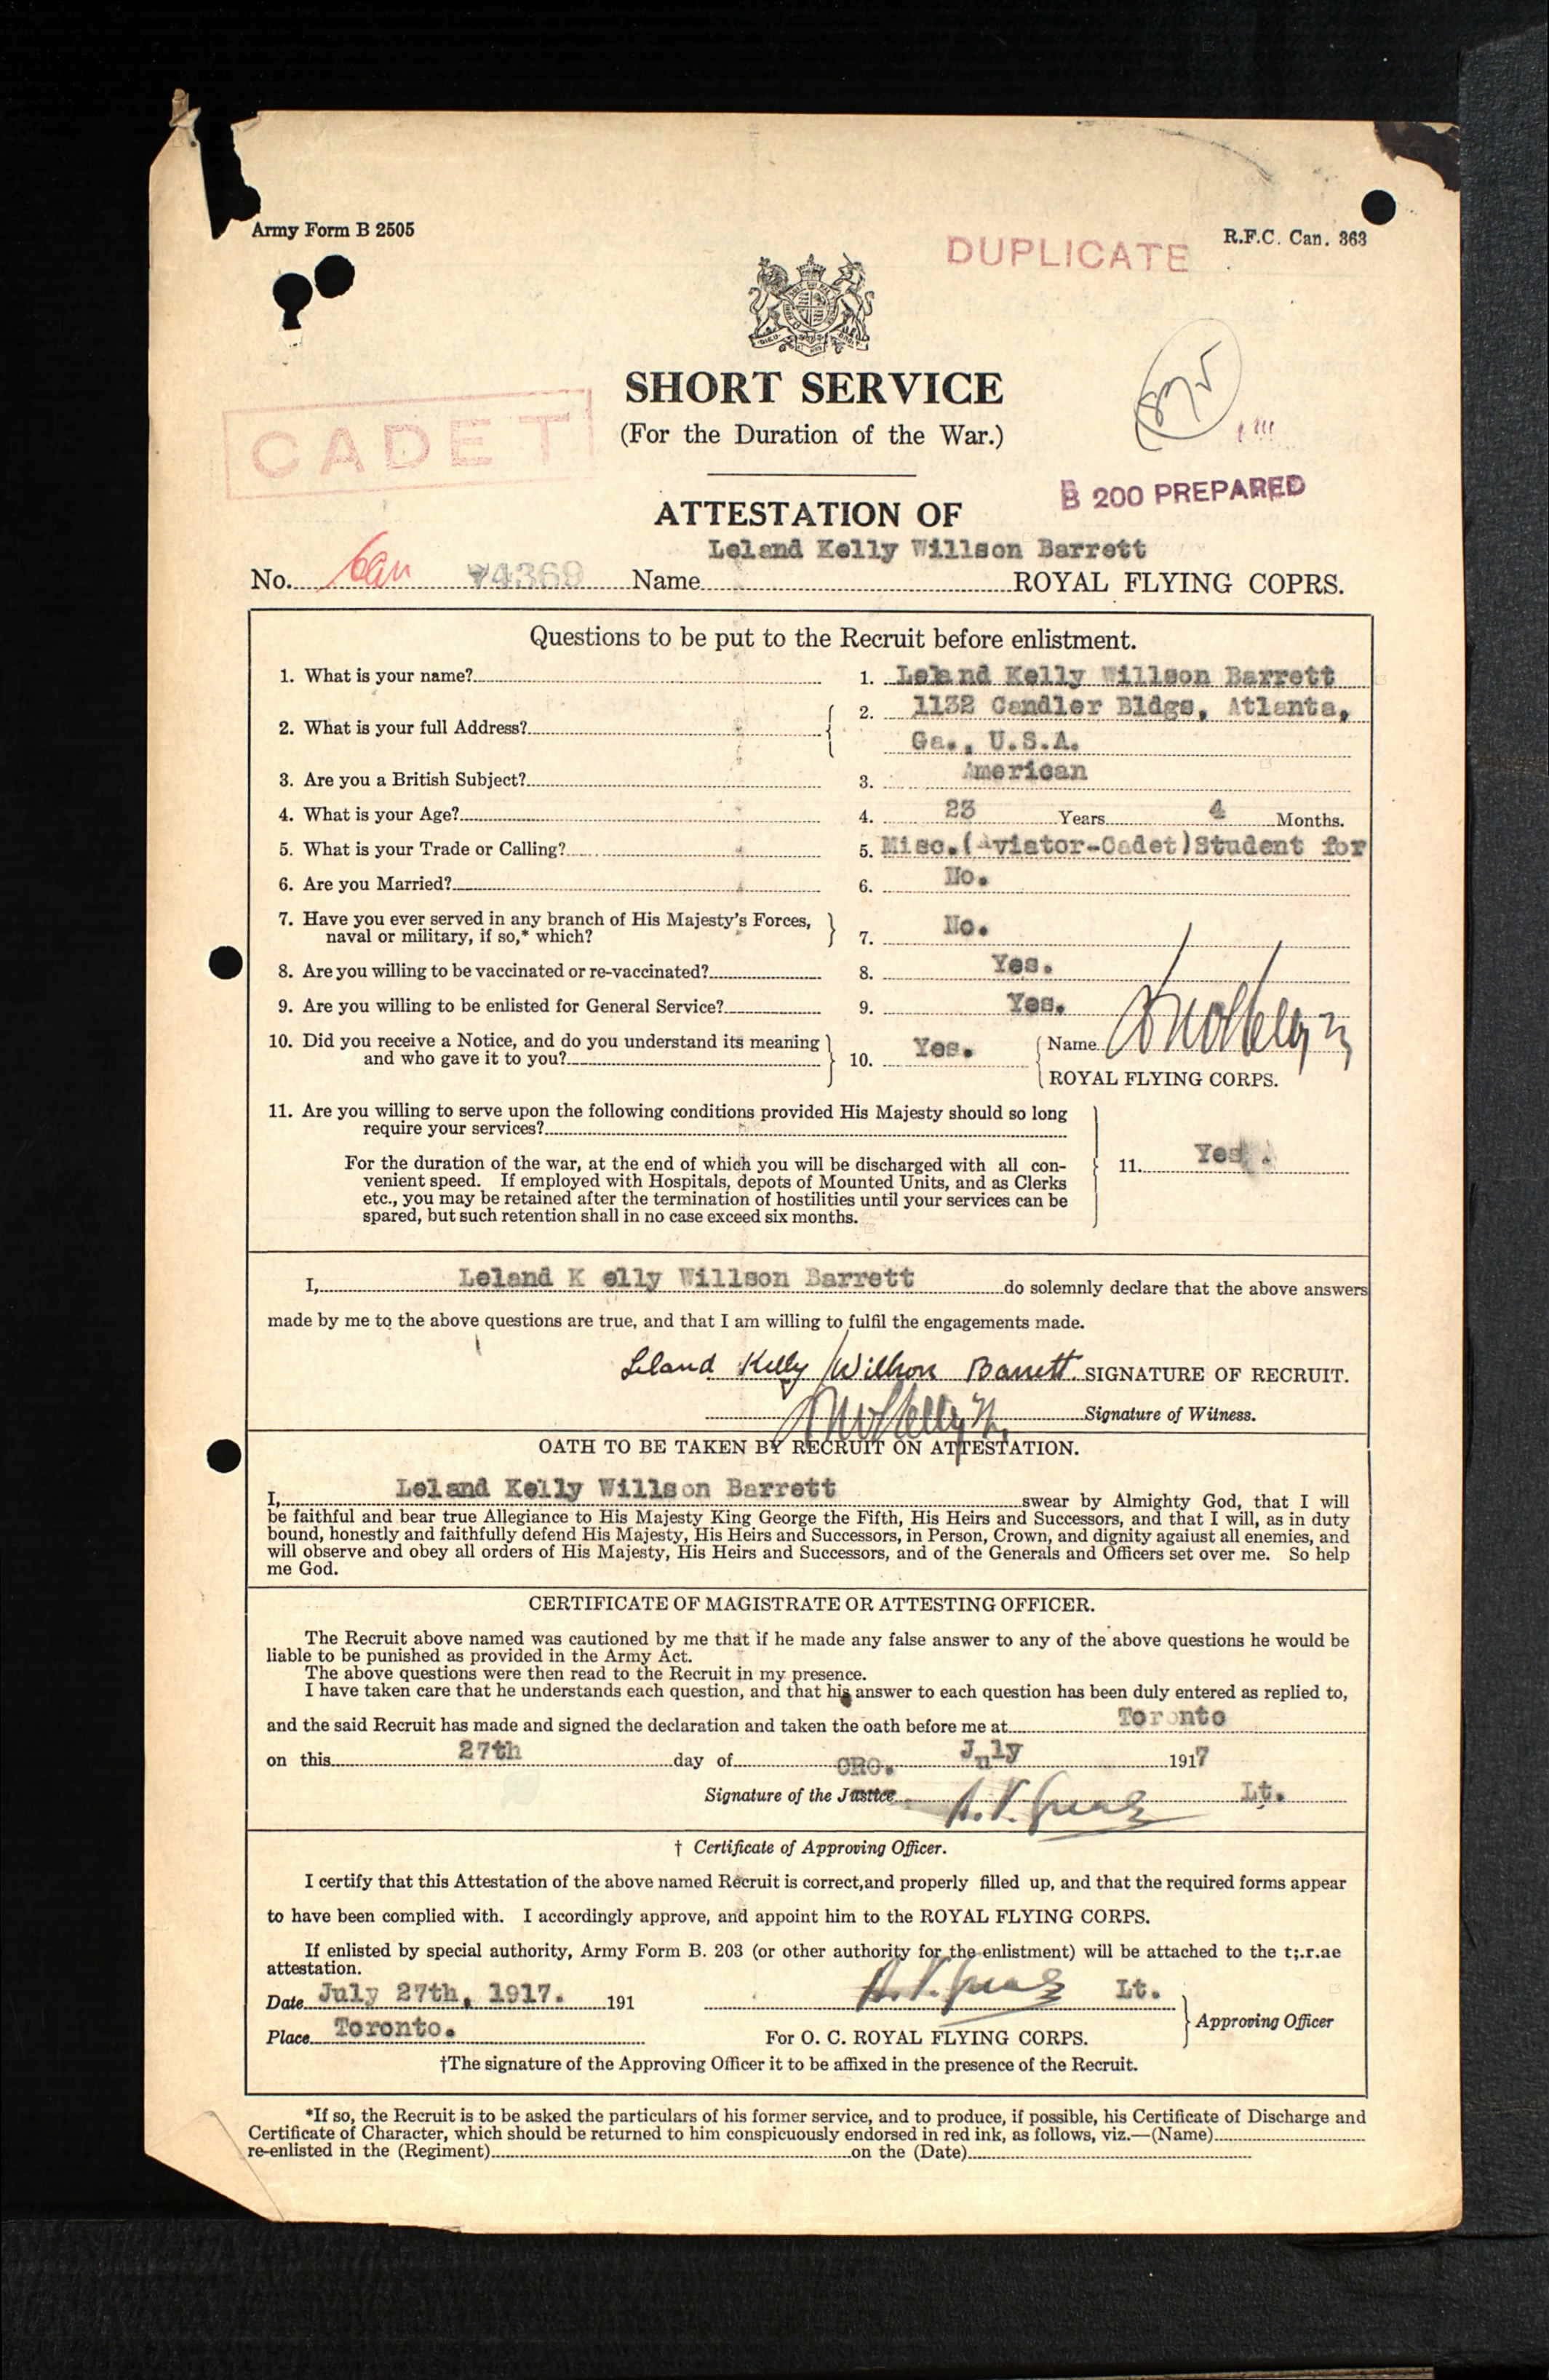 Army Form B 2505
R.F.C. Can. 363
DUPLICATE
SHORT SERVICE
(For the Duration of the War.)
CADET
B 200 PREPARED
ATTESTATION OF
Leland Kelly Willson Barrett
No. Can 74369 Name ROYAL FLYING COPRS.
Questions to be put to the Recruit before enlistment.
1. What is your name? 1. Leland Kelly Willson Barrett
2. What is your full Address? 2. 1132 Candler Bldgs, Atlanta,
Ga., U.S.A.
3. Are you a British Subject? 3. American
4. What is your Age? 4. 23 Years 4 Months.
5. What is your Trade or Calling? 5. Misc.(Aviator-Cadet)Student for
6. Are you Married? 6. No.
7. Have you ever served in any branch of His Majesty's Forces,
naval or military, if so,* which? 7. No.
8. Are you willing to be vaccinated or re-vaccinated? 8. Yes.
9. Are you willing to be enlisted for General Service? 9. Yes.
10. Did you receive a Notice, and do you understand its meaning
and who gave it to you? 10. Yes. Name
ROYAL FLYING CORPS.
11. Are you willing to serve upon the following conditions provided His Majesty should so long
require your services?
For the duration of the war, at the end of which you will be discharged with all con-
venient speed. If employed with Hospitals, depots of Mounted Units, and as Clerks
etc., you may be retained after the termination of hostilities until your services can be
spared, but such retention shall in no case exceed six months.
11. Yes.
I, Leland K elly Willson Barrett do solemnly declare that the above answers
made by me to the above questions are true, and that I am willing to fulfil the engagements made.
Leland Kelly Willson Barrett SIGNATURE OF RECRUIT.
Signature of Witness.
OATH TO BE TAKEN BY RECRUIT ON ATTESTATION.
I, Leland Kelly Willson Barrett swear by Almighty God, that I will
be faithful and bear true Allegiance to His Majesty King George the Fifth, His Heirs and Successors, and that I will, as in duty
bound, honestly and faithfully defend His Majesty, His Heirs and Successors, in Person, Crown, and dignity agaiust all enemies, and
will observe and obey all orders of His Majesty, His Heirs and Successors, and of the Generals and Officers set over me. So help
me God.
CERTIFICATE OF MAGISTRATE OR ATTESTING OFFICER.
The Recruit above named was cautioned by me that if he made any false answer to any of the above questions he would be
liable to be punished as provided in the Army Act.
The above questions were then read to the Recruit in my presence.
I have taken care that he understands each question, and that his answer to each question has been duly entered as replied to,
and the said Recruit has made and signed the declaration and taken the oath before me at Toronto
on this 27th day of July 1917
CRO.
Signature of the Justice Lt.
† Certificate of Approving Officer.
I certify that this Attestation of the above named Recruit is correct,and properly filled up, and that the required forms appear
to have been complied with. I accordingly approve, and appoint him to the ROYAL FLYING CORPS.
If enlisted by special authority, Army Form B. 203 (or other authority for the enlistment) will be attached to the t;.r.ae
attestation.
Date July 27th, 1917. 191 Lt.
Approving Officer
Place Toronto. For O. C. ROYAL FLYING CORPS.
†The signature of the Approving Officer it to be affixed in the presence of the Recruit.
*If so, the Recruit is to be asked the particulars of his former service, and to produce, if possible, his Certificate of Discharge and
Certificate of Character, which should be returned to him conspicuously endorsed in red ink, as follows, viz.—(Name)
re-enlisted in the (Regiment) on the (Date)